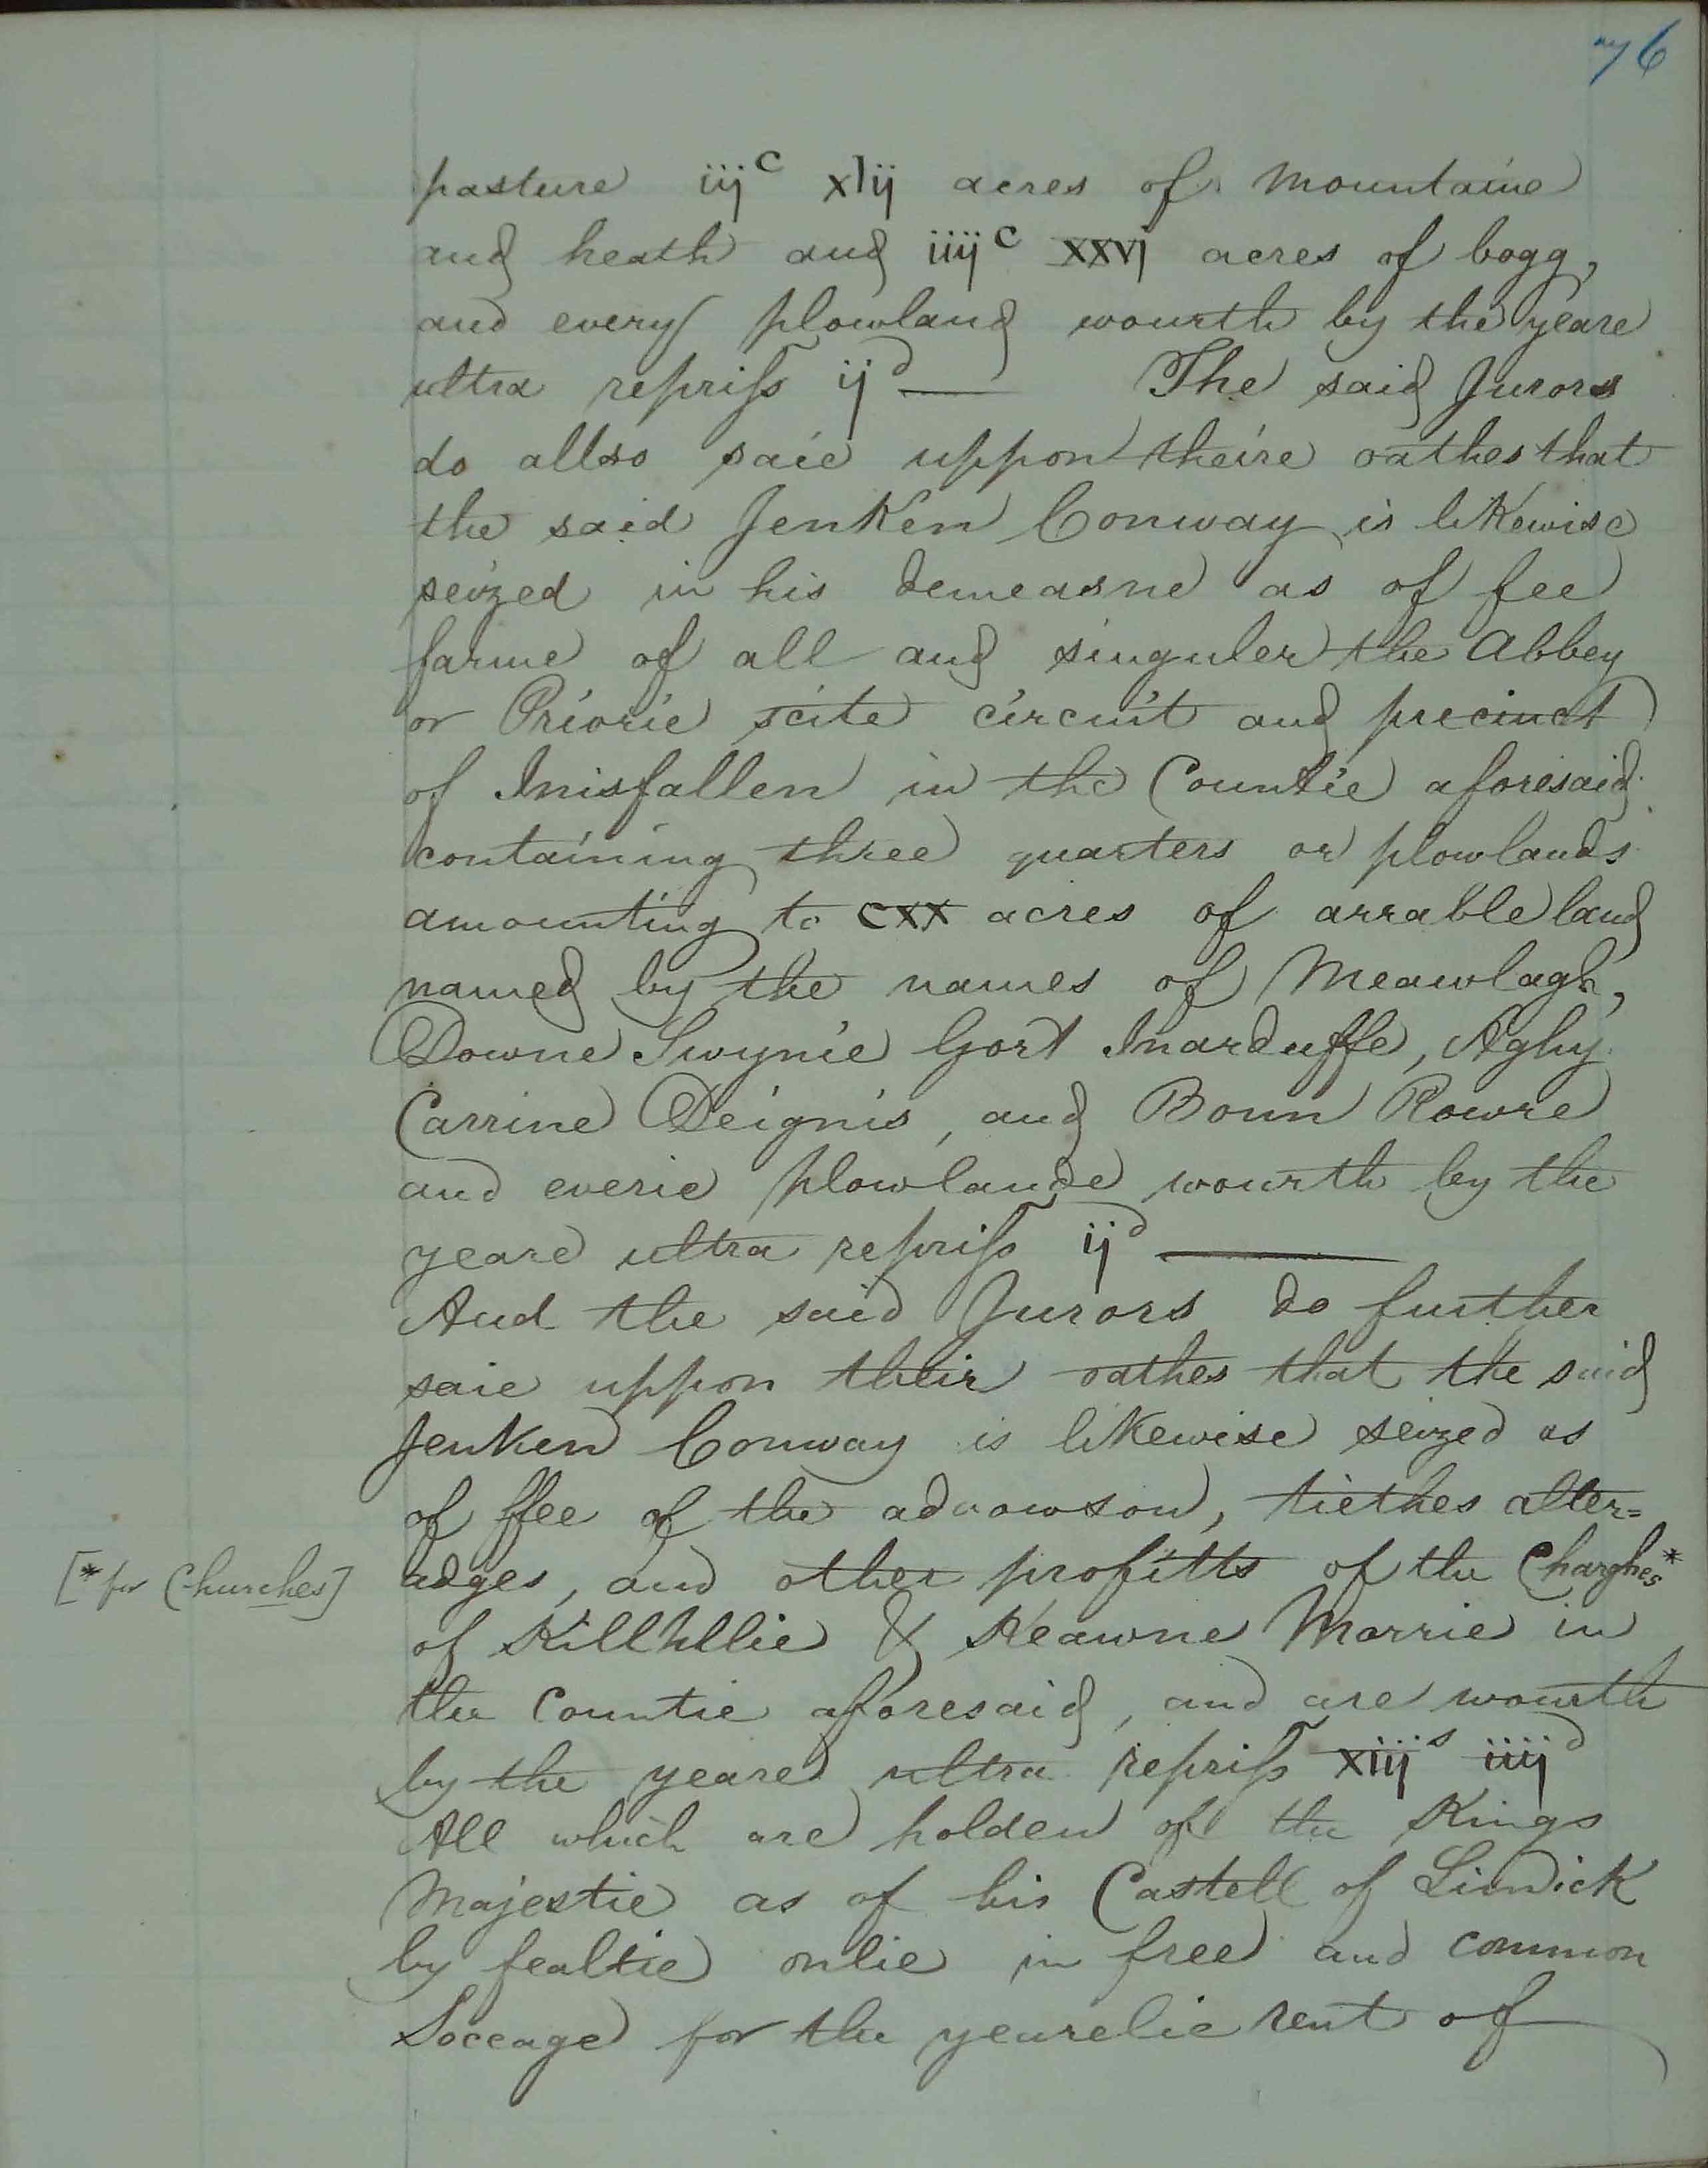 76
pasture iij^c xlij acres of mountaine
and heath and iiij^c xxvj acres of bogg,
and every plowland wourth by the yeare
ultra repriss ij^d — The said Jurors
do allso saie uppon theire oathes that
the said Jenken Conway is likewise
seized in his demeasne as of fee
farme of all and singuler the Abbey
or Priorie scite circuit and precinct
of Inisfallen in the Countie aforesaid
containing three quarters or plowlands
amounting to cxx acres of arrable land
named by the names of Meawlagh,
Downe Swynie Gort Inarduffe, Aghy
Carrine Deignis, and Boun Rowre
and everie plowlande wourth by the
yeare ultra repriss ij^d —
And the said Jurors do further
saie uppon their oathes that the said
Jenken Conway is likewise seized as
of ffee of the advowson, tiethes alter=
adges, and other profitts of the Charghes*
[*for Churches]
of Killhllie & Keawne Marrie in
the Countie aforesaid, and are wourth
by the yeare ultra repriss xiij^s iiij^d
All which are holden of the Kings
Majestie as of his Castell of Limick
by fealtie onlie in free and common
Soccage for the yearelie rent of